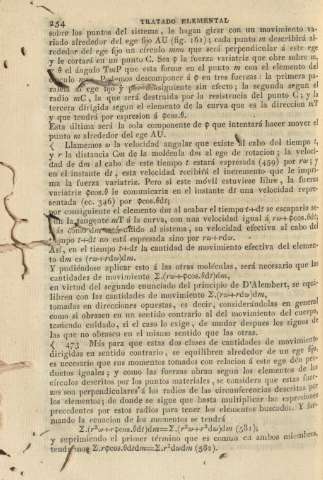 254 TRATADO ELEMENTAL
sobre los puntos del sistema, le hagan girar con un movimiento va-
riado alrededor del ege fijo AU (fig. 162); cada punto m describirá al-
rededor del ege fijo un círculo mnu que será perpendicular á este ege
y le cortará en un punto C. Sea φ la fuerza variatriz que obre sobre m,
y θ el ángulo TmP que esta forme en el punto m con el elemento del
círculo mnu. Podemos descomponer á φ en tres fuerzas: la primera pa-
ralela al ege fijo y sin efecto; la segunda segun el
radio mC, la que será destruida por la resistencia del punto C; y la
tercera dirigida segun el elemento de la curva que es la direccion mT
y que tendrá por espresion á φcos.θ.
Esta última será la sola componente de φ que intentará hacer mover el
punto m alrededor del ege AU.
Llamemos ω la velocidad angular que existe al cabo del tiempo t,
y r la distancia Cm de la molécula dm al ege de rotacion; la veloci-
dad de dm al cabo de este tiempo t estará espresada (459) por rω; y
en el instante dt, esta velocidad recibirá el incremento que le impri-
ma la fuerza variatriz. Pero si este móvil estuviese libre, la fuerza
variatriz φcos.θ le comunicaria en el instante dt una velocidad repre-
sentada (ec. 346) por φcos.θdt;
por consiguiente el elemento dm al acabar el tiempo t+dt se escaparia se-
gun la tangente mT á la curva, con una velocidad igual á rω+φcos.θdt;
mas como dm al sistema, su velocidad efectiva al cabo del
tiempo t+dt no está espresada sino por rω+rdω.
Asi, en el tiempo t+dt la cantidad de movimiento efectiva del elemen-
to dm es (rω+rdω)dm,
Y pudiéndose aplicar esto á las otras moléculas, será necesario que las
cantidades de movimiento Σ.(rω+φcos.θdt)dm,
en virtud del segundo enunciado del principio de D'Alembert, se equi-
libren con las cantidades de movimiento Σ.(rω+rdω)dm,
tomadas en direcciones opuestas, es decir, considerándolas en general
como si obrasen en un sentido contrario al del movimiento del cuerpo,
teniendo cuidado, si el caso lo exige, de mudar despues los signos de
las que no obrasen en el mismo sentido que las otras.
473 Mas para que estas dos clases de cantidades de movimiento
dirigidas en sentido contrario, se equilibren alrededor de un ege fijo,
es necesario que sus momentos tomados con relacion á este ege den pro-
ductos iguales; y como las fuerzas obran segun los elementos de los
círculos descritos por los puntos materiales, se considera que estas fuer-
zas son perpendiculares á los radios de las circunferencias descritas por
los elementos; de donde se sigue que basta multiplicar las espresiones
precedentes por estos radios para tener los elementos buscados. Y for-
mando la ecuacion de los momentos se tendrá
Σ.(r²ω+rφcos.θdt)dm=Σ.(r²ω+r²dω)dm (581);
y suprimiendo el primer término que es comun en ambos miembros,
tendremos Σ.rφcos.θdtdm=Σ.r²dωdm (582).